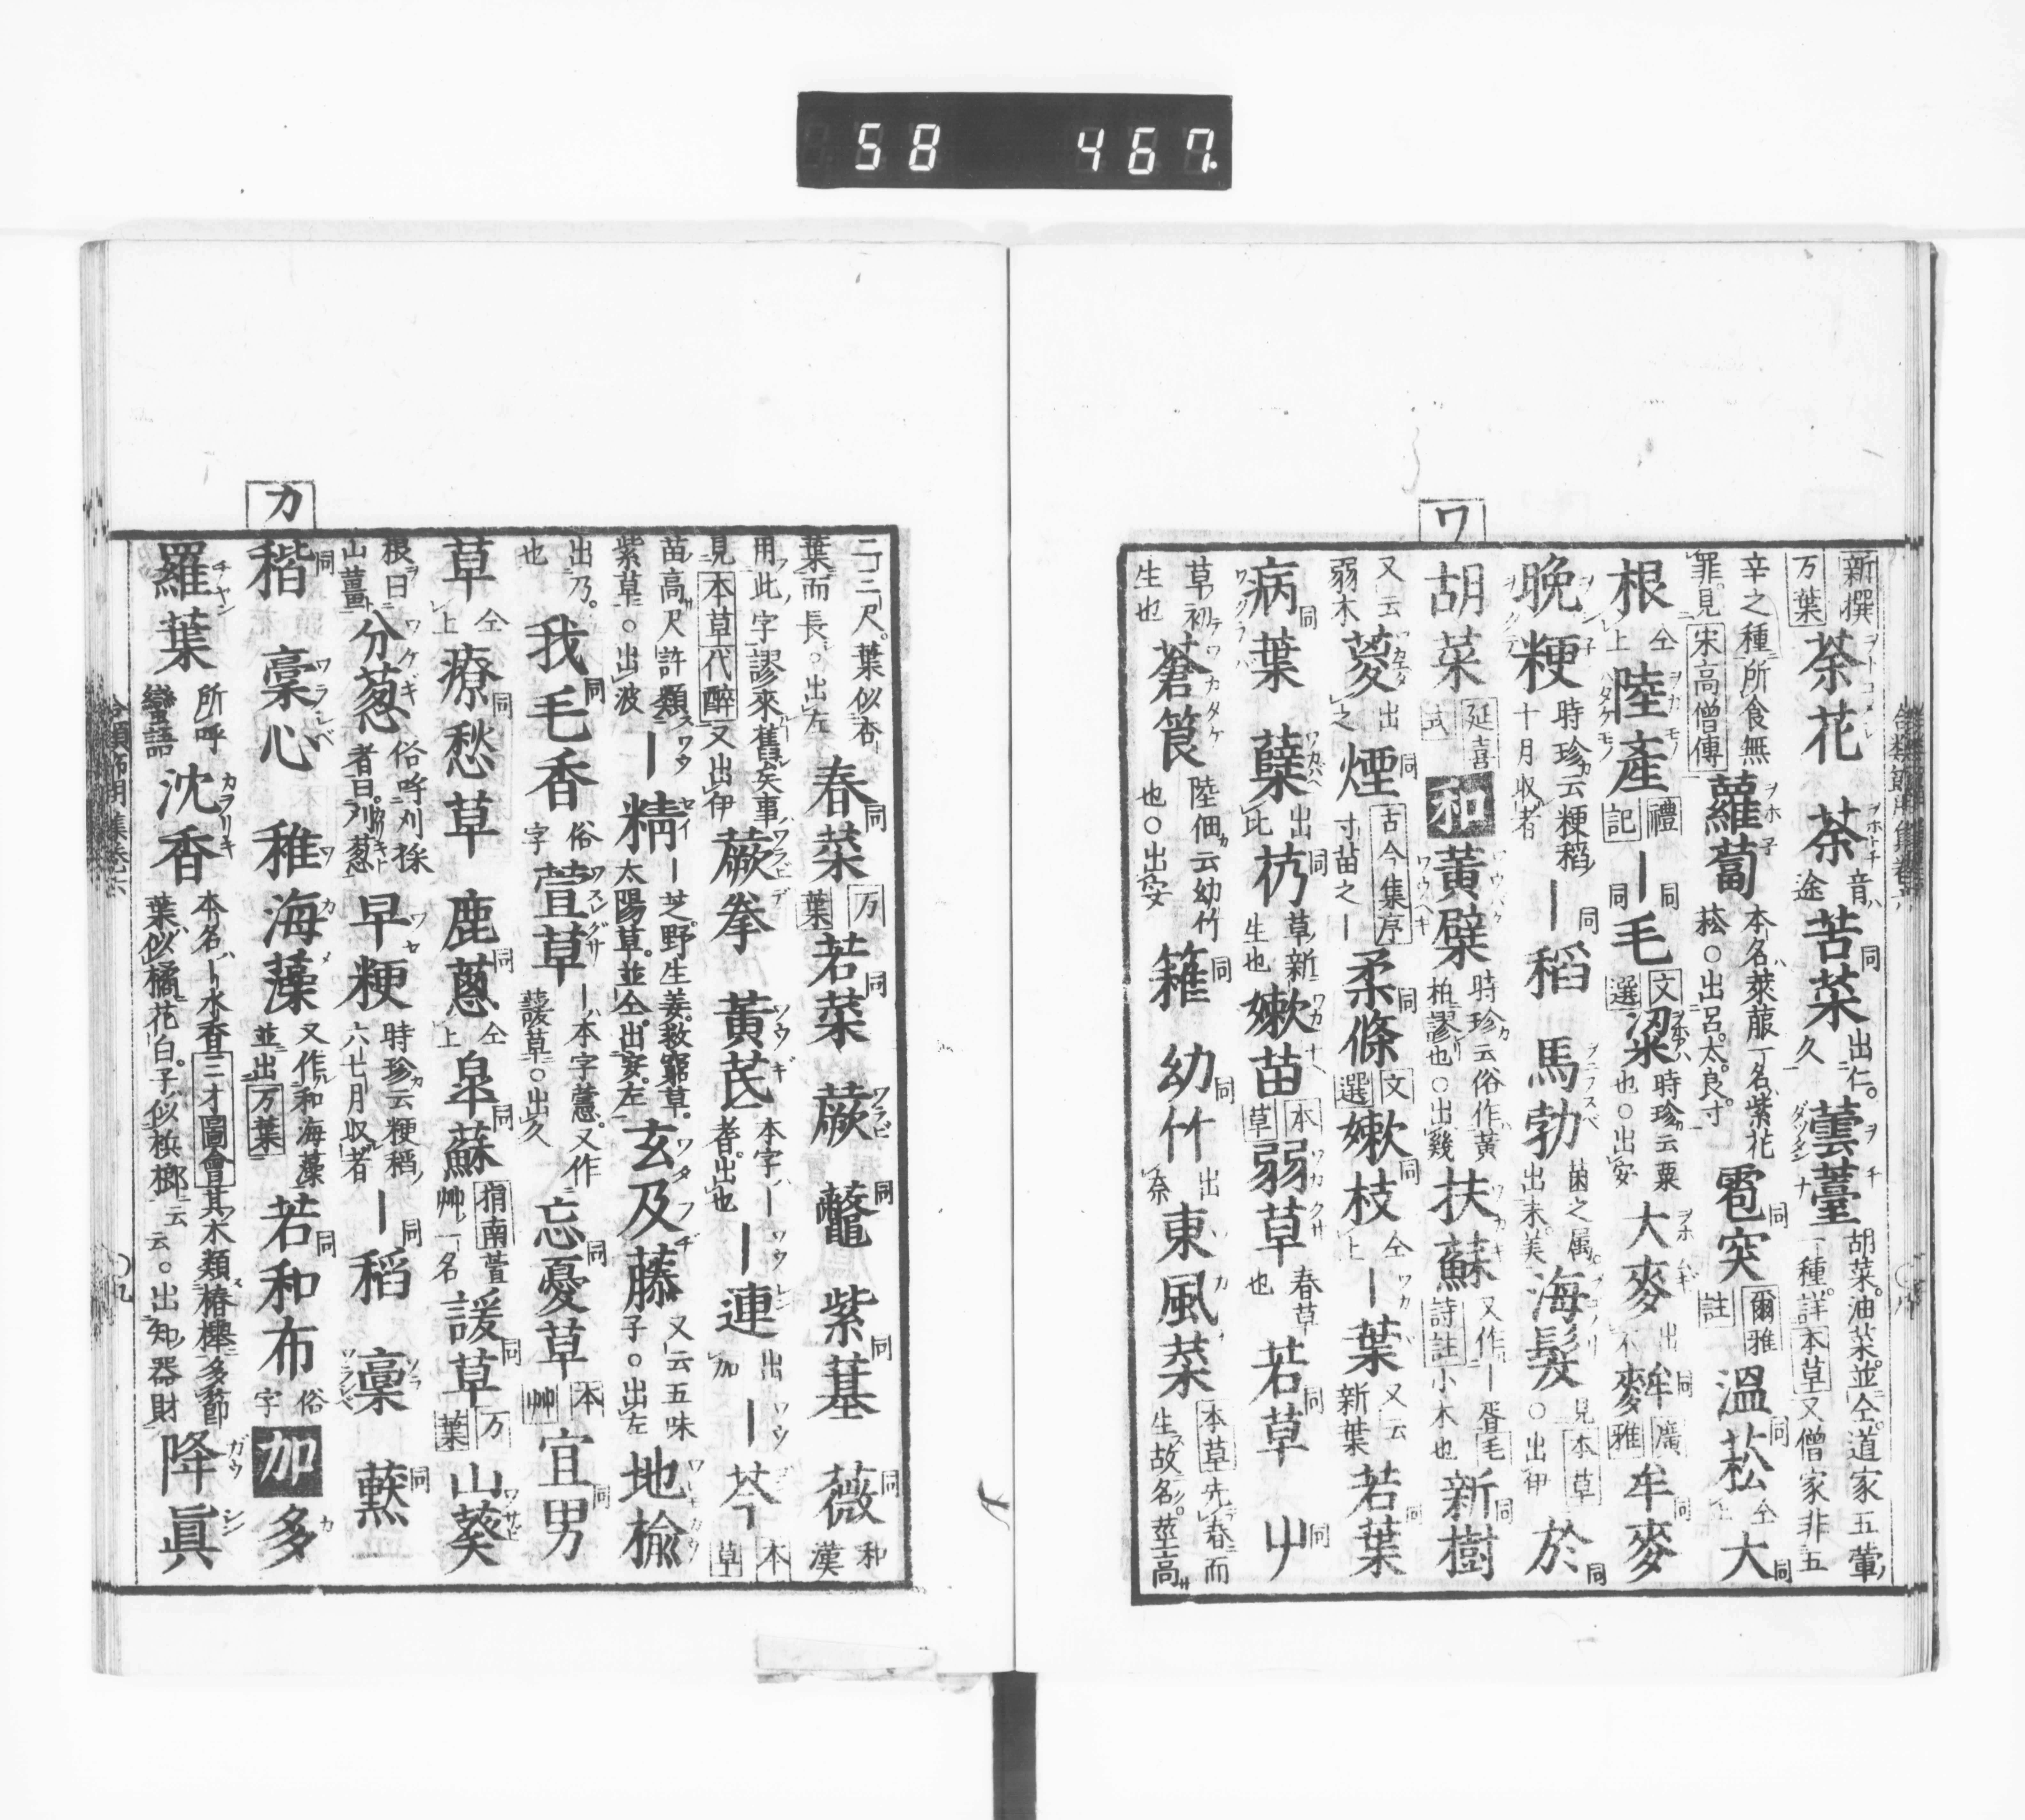 58 467
ワ
新撰万葉 荼花 荼 音途 苦菜 出仁久 蕓薹 胡菜油菜並仝道家五葷ノ一種詳本草又僧家非五
辛之種所食無罪見宋高僧傳 蘿蔔 本名萊菔一名紫花菘○出呂太良寸 雹突 爾雅註 溫菘 仝上 大
根 仝上 陸產 禮記 ー毛 文選 粱 時珍云粟也○出安 大麥 出不 牟麥 廣雅 牟麥
晩粳 時珍云粳稻十月収者 ー稻 馬勃 菌之属出末美 海髮 見本草○出伊 於
胡菜 延喜式 和 黃檗 時珍云俗作黃柏謬也○出幾 扶蘇 又作ー胥毛詩註小木也 新樹
又云弱木 葼 出之 煙 古今集序寸苗之ー 柔條 文選 嫰枝 仝上 ー葉 又云新葉 若葉
病葉 蘖 出比 芿 草新生也 嫰苗 本草 弱草 春草也 若草 屮
草初生也 蒼筤 陸佃云幼竹也○出安 籬 幼竹 出奈 東風菜 本草先春而生故名莖高
カ
二三尺葉似杏葉而長○出左 春菜 万葉 若菜 蕨 虌 紫蓋 薇 和漢
用此字謬來舊矣事見本草代醉又出伊 蕨拳 黃芪 本字ー者出也 ー連 出加 ー芩 本草
苗高尺許類紫草○出波 ー精 ー芝野生姜救窮草太陽草並仝出安左 玄及藤 又云五味子○出左 地楡
出乃也 我毛香 俗字 萱草 ー本字藼又作蘐草○出久 忘憂草 本艸 宜男
草 仝上 療愁草 鹿蔥 仝上 皐蘇 指南萱艸一名 諼草 万葉 山葵
根曰山薑 分葱 俗呼刈採者曰刈葱 早粳 時珍云粳稻六七月収者 ー稻 稟 𦽦
稭 稾心 稚海藻 又作和海藻並出万葉 若和布 俗字 加 多
羅葉 所呼蠻語 沈香 本名ー水香三才圖會其木類椿櫸多節葉似橘花白子似檳榔云云○出知器財 降眞